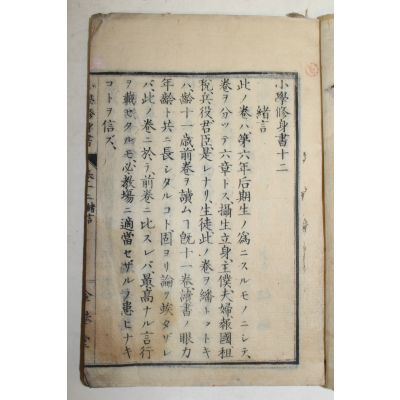 小學修身書十二
緒言
此ノ卷ハ第六年后期生ノ爲ニスルモノニシテ、
卷ヲ分ツテ六章トス、攝生立身、主僕夫婦、報國租
稅、兵役君臣、是レナリ、生徒此ノ卷ヲ繙トットキ
ハ、齡十一歲前卷ヲ讀ムヿ旣十一卷、讀書ノ眼力
年齡ト共ニ長シタルコト固ヨリ論ヲ竢タザレ
バ、此ノ卷ニ於テ、前卷ニ比スレバ最高ナル言行
ヲ載セタルモ、必教場ニ適當セザルヲ患ヒナキ
コトヲ信ズ、
小學修身書
卷十二緒言